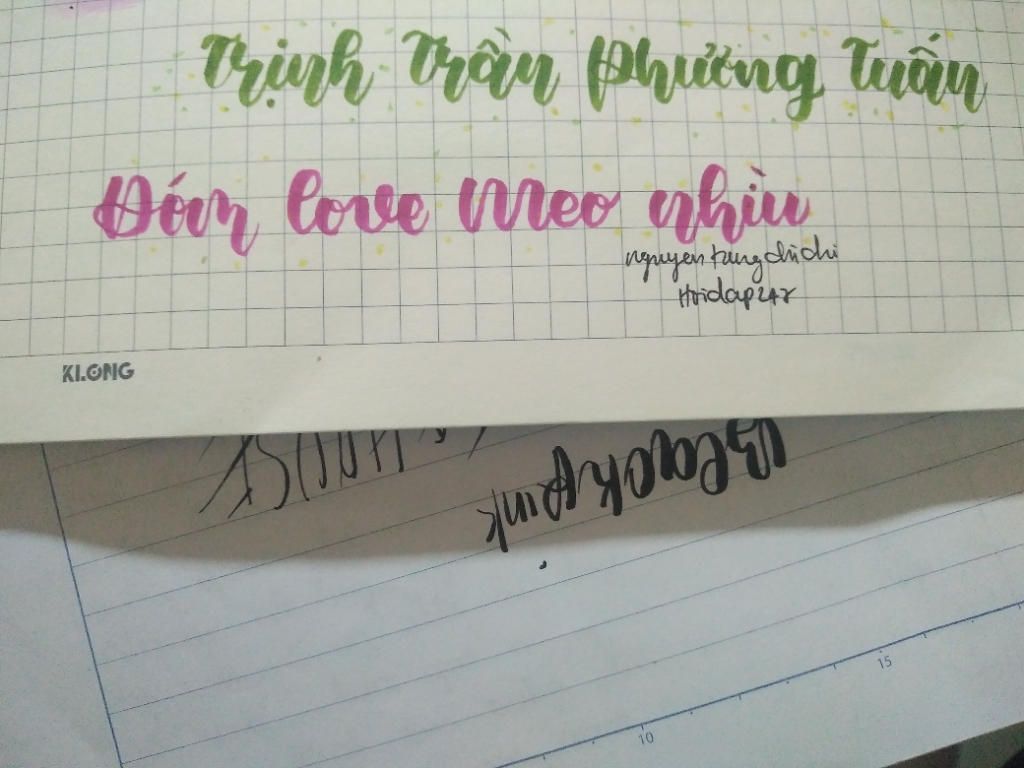 Trịnh Trần Phương Tuấn
Đóm love Meo nhìu
nguyen tung chi chi
Hoidap247
KLONG
Blackpink
10
15